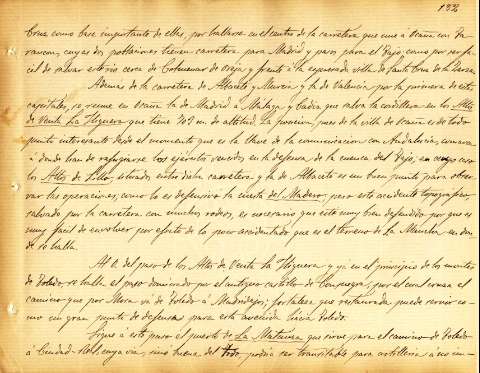 132
Cruz como base importante de ellas, por hallarse en el centro de la carretera que une a Ocaña con Ta-
rancon, cuyas dos poblaciones tienen carretera para Madrid y pasos para el Tajo, como por ser fa-
cil de salvar este rio cerca de Colmenar de Oreja y frente à la espresada villa de Santa Cruz de la Zarza.
Ademas de la carretera de Albacete y Murcia y la de Valencia, por la primera de estas
capitales, se reune en Ocaña la de Madrid à Málaga y Cadiz que salva la cordillera en los Altos
de Venta La Higuera que tiene 709 m. de altitud. La posicion, pues de la villa de Ocaña es de todo
punto interesante desde el momento que es la llave de la comunicacion con Andalucia, comarca
à donde han de refugiarse los ejércitos vencidos en la defensa de la cuenca del Tajo, en cuyo caso
los Altos de Lillo, situados entre dicha carretera y la de Albacete es un buen punto para obser-
var las operaciones, como lo es defensivo la cuesta del Madero; pero este accidente topografico,
salvado por la carretera con muchos rodeos, es necesario que esté muy bien defendido por que es
muy facil de envolver por efecto de lo poco accidentado que es el terreno de La Mancha en don-
de se halla.
Al O. del paso de los Altos de Venta La Higuera y ya en el principio de los montes
de Toledo, se halla el paso dominado por el antiguo castillo de Consuegra; por el cual cruza el
camino que por Mora va de Toledo à Madridejos; fortaleza que restaurada puede servir co-
mo un gran punto de defensa para esta avenida hácia Toledo.
Sigue à este paso el puerto de La Matanza que sirve para el camino de Toledo
à Ciudad-Real, cuya via, sinó buena del todo, podria ser transitable para artilleria à no un-